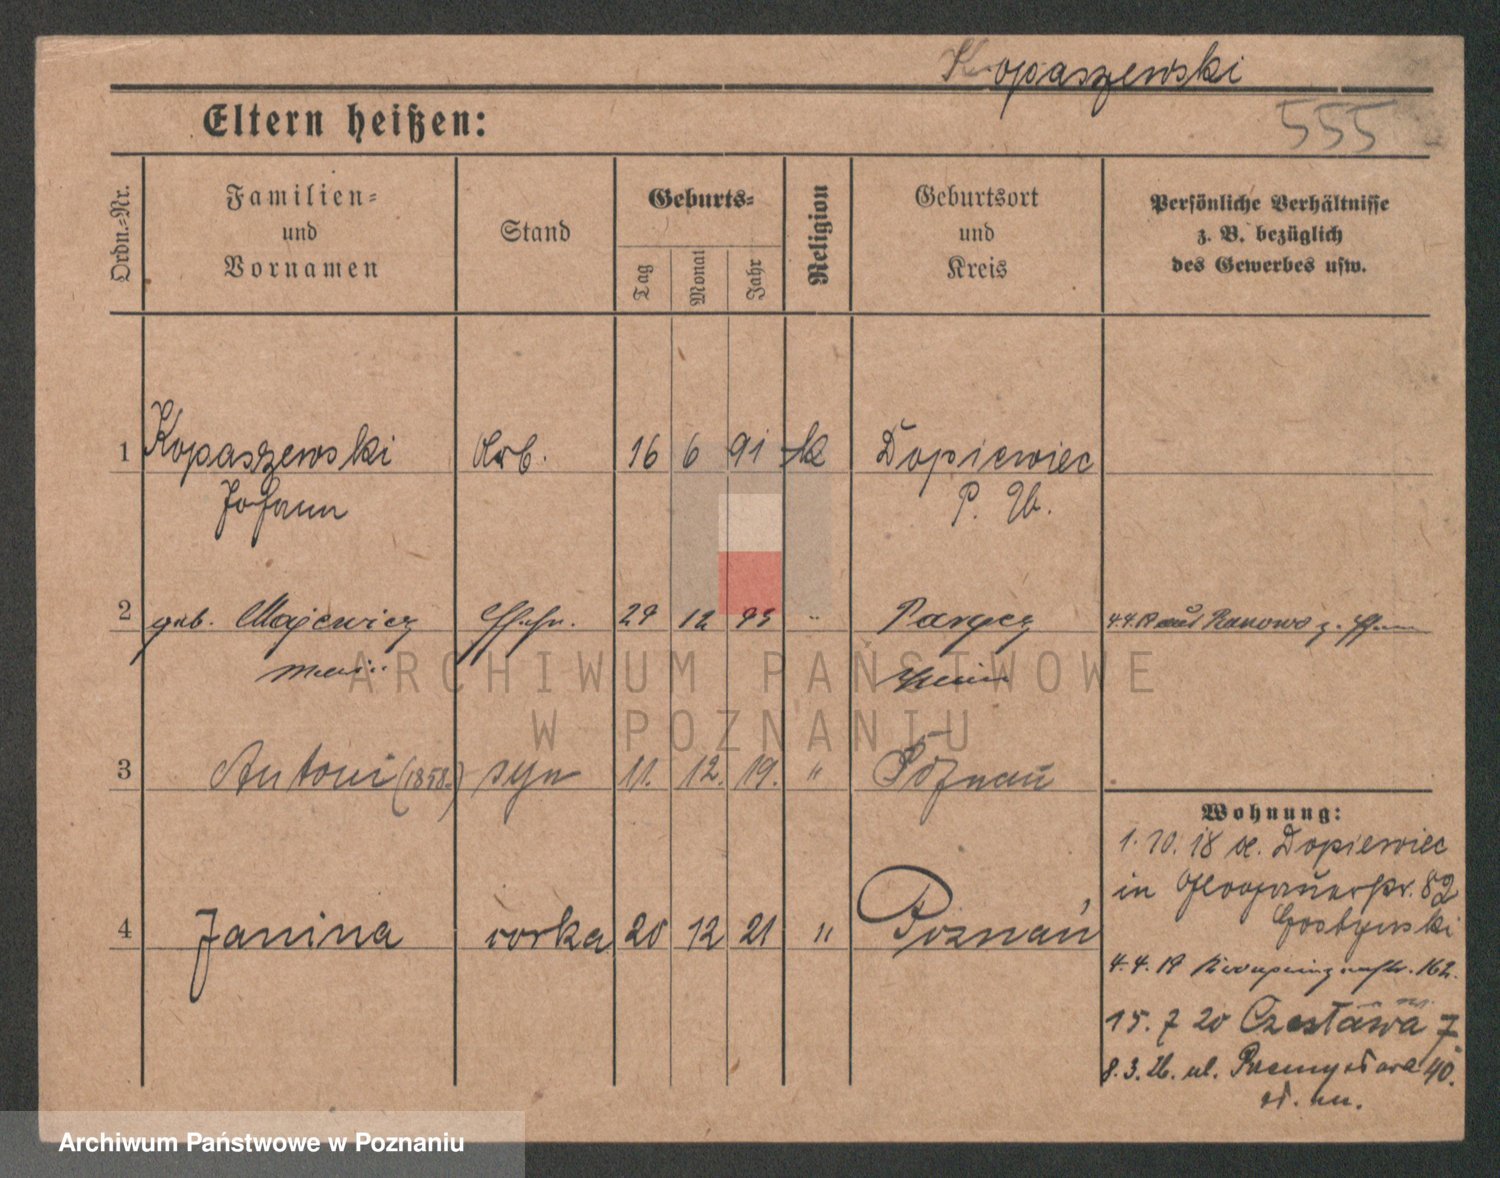 Kopaszewski
Eltern heißen:
555
Ordn.-Nr.
Familien-
und
Vornamen
Stand
Geburts-
Tag
Monat
Jahr
Religion
Geburtsort
und
Kreis
Persönliche Verhältnisse
z. B. bezüglich
des Gewerbes usw.
1 Kopaszewski Arb. 16 6 91 k Dopiewiec
Johann P. W.
2 geb. Majewicz Ehefr. 29 12 93 "
3 Antoni (1858.) syn 11. 12. 19. " Poznań
4 Janina córka 20 12 21 " Poznań
Wohnung:
1. 10. 18 Dopiewiec
in Glogauerstr. 82
4. 4. 19 Kronprinzenstr. 162.
15. 7 20 Czesława 7
8. 3. 26. ul. Przemysłowa 40.
ARCHIWUM PAŃSTWOWE
W POZNANIU
Archiwum Państwowe w Poznaniu